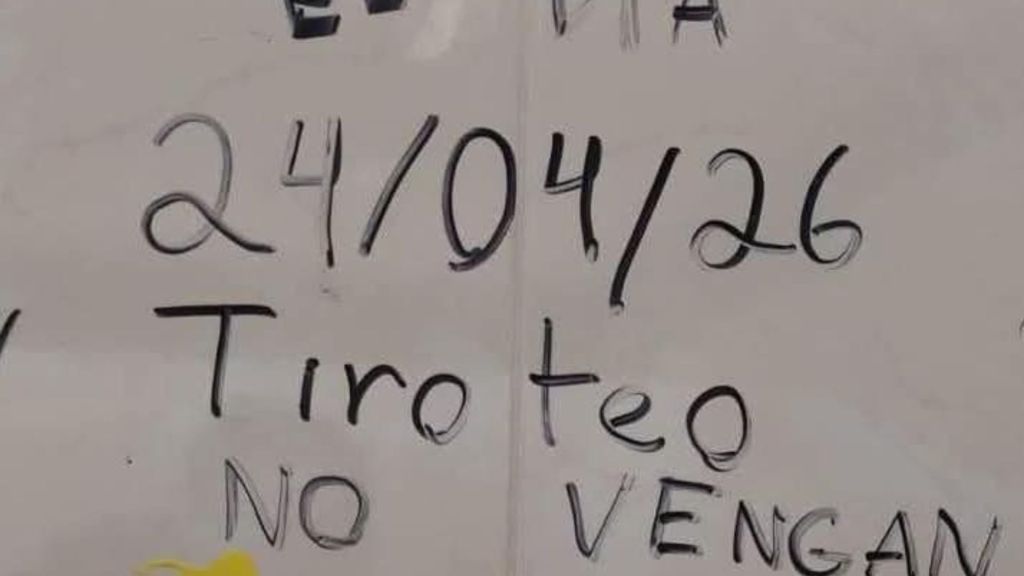 24/04/26
Tiroteo
NO VENGAN